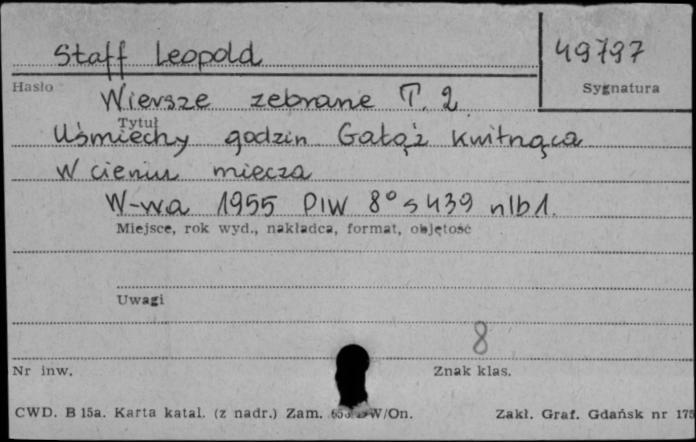 Staff Leopold 49797
Hasło Sygnatura
Wiersze zebrane T. 2
Tytuł
Uśmiechy godzin Gałąź kwitnąca
W cieniu miecza
W-wa 1955 PIW 8° s 439 nlb 1.
Miejsce, rok wyd., nakładca, format, objętość
Uwagi
8
Nr inw. Znak klas.
CWD. B 15a. Karta katal. (z nadr.) Zam. W/On. Zakł. Graf. Gdańsk nr 175